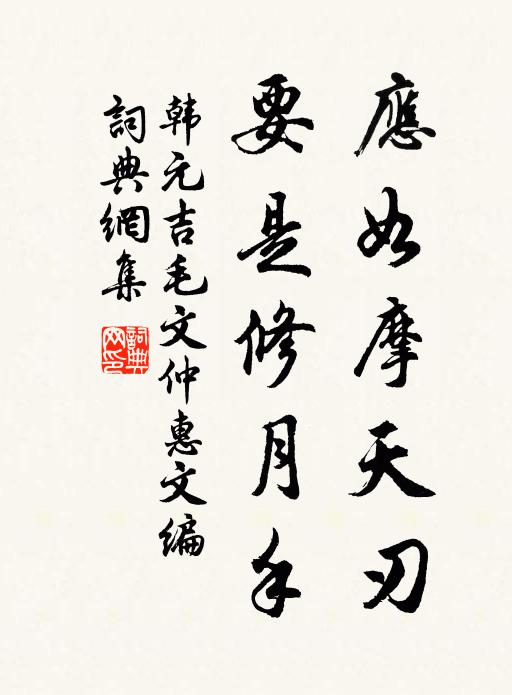 應如摩天刃
要是修月手
韩元吉毛文仲惠文编
詞典網集
詞典网印